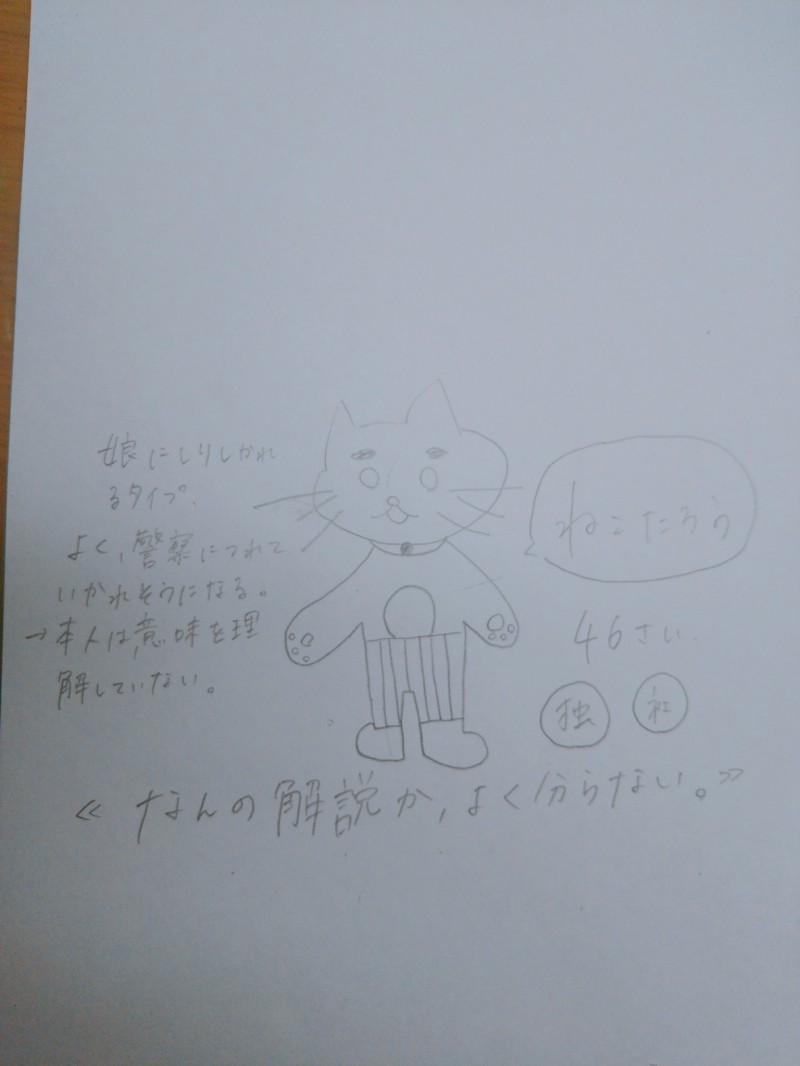 娘にしりしかれ
るタイプ.
よく,警察につれて
いかれそうになる。
→本人は,意味を理
解していない。
ねこたろう
46さい.
独
社
≪なんの解説か,よく分らない。≫